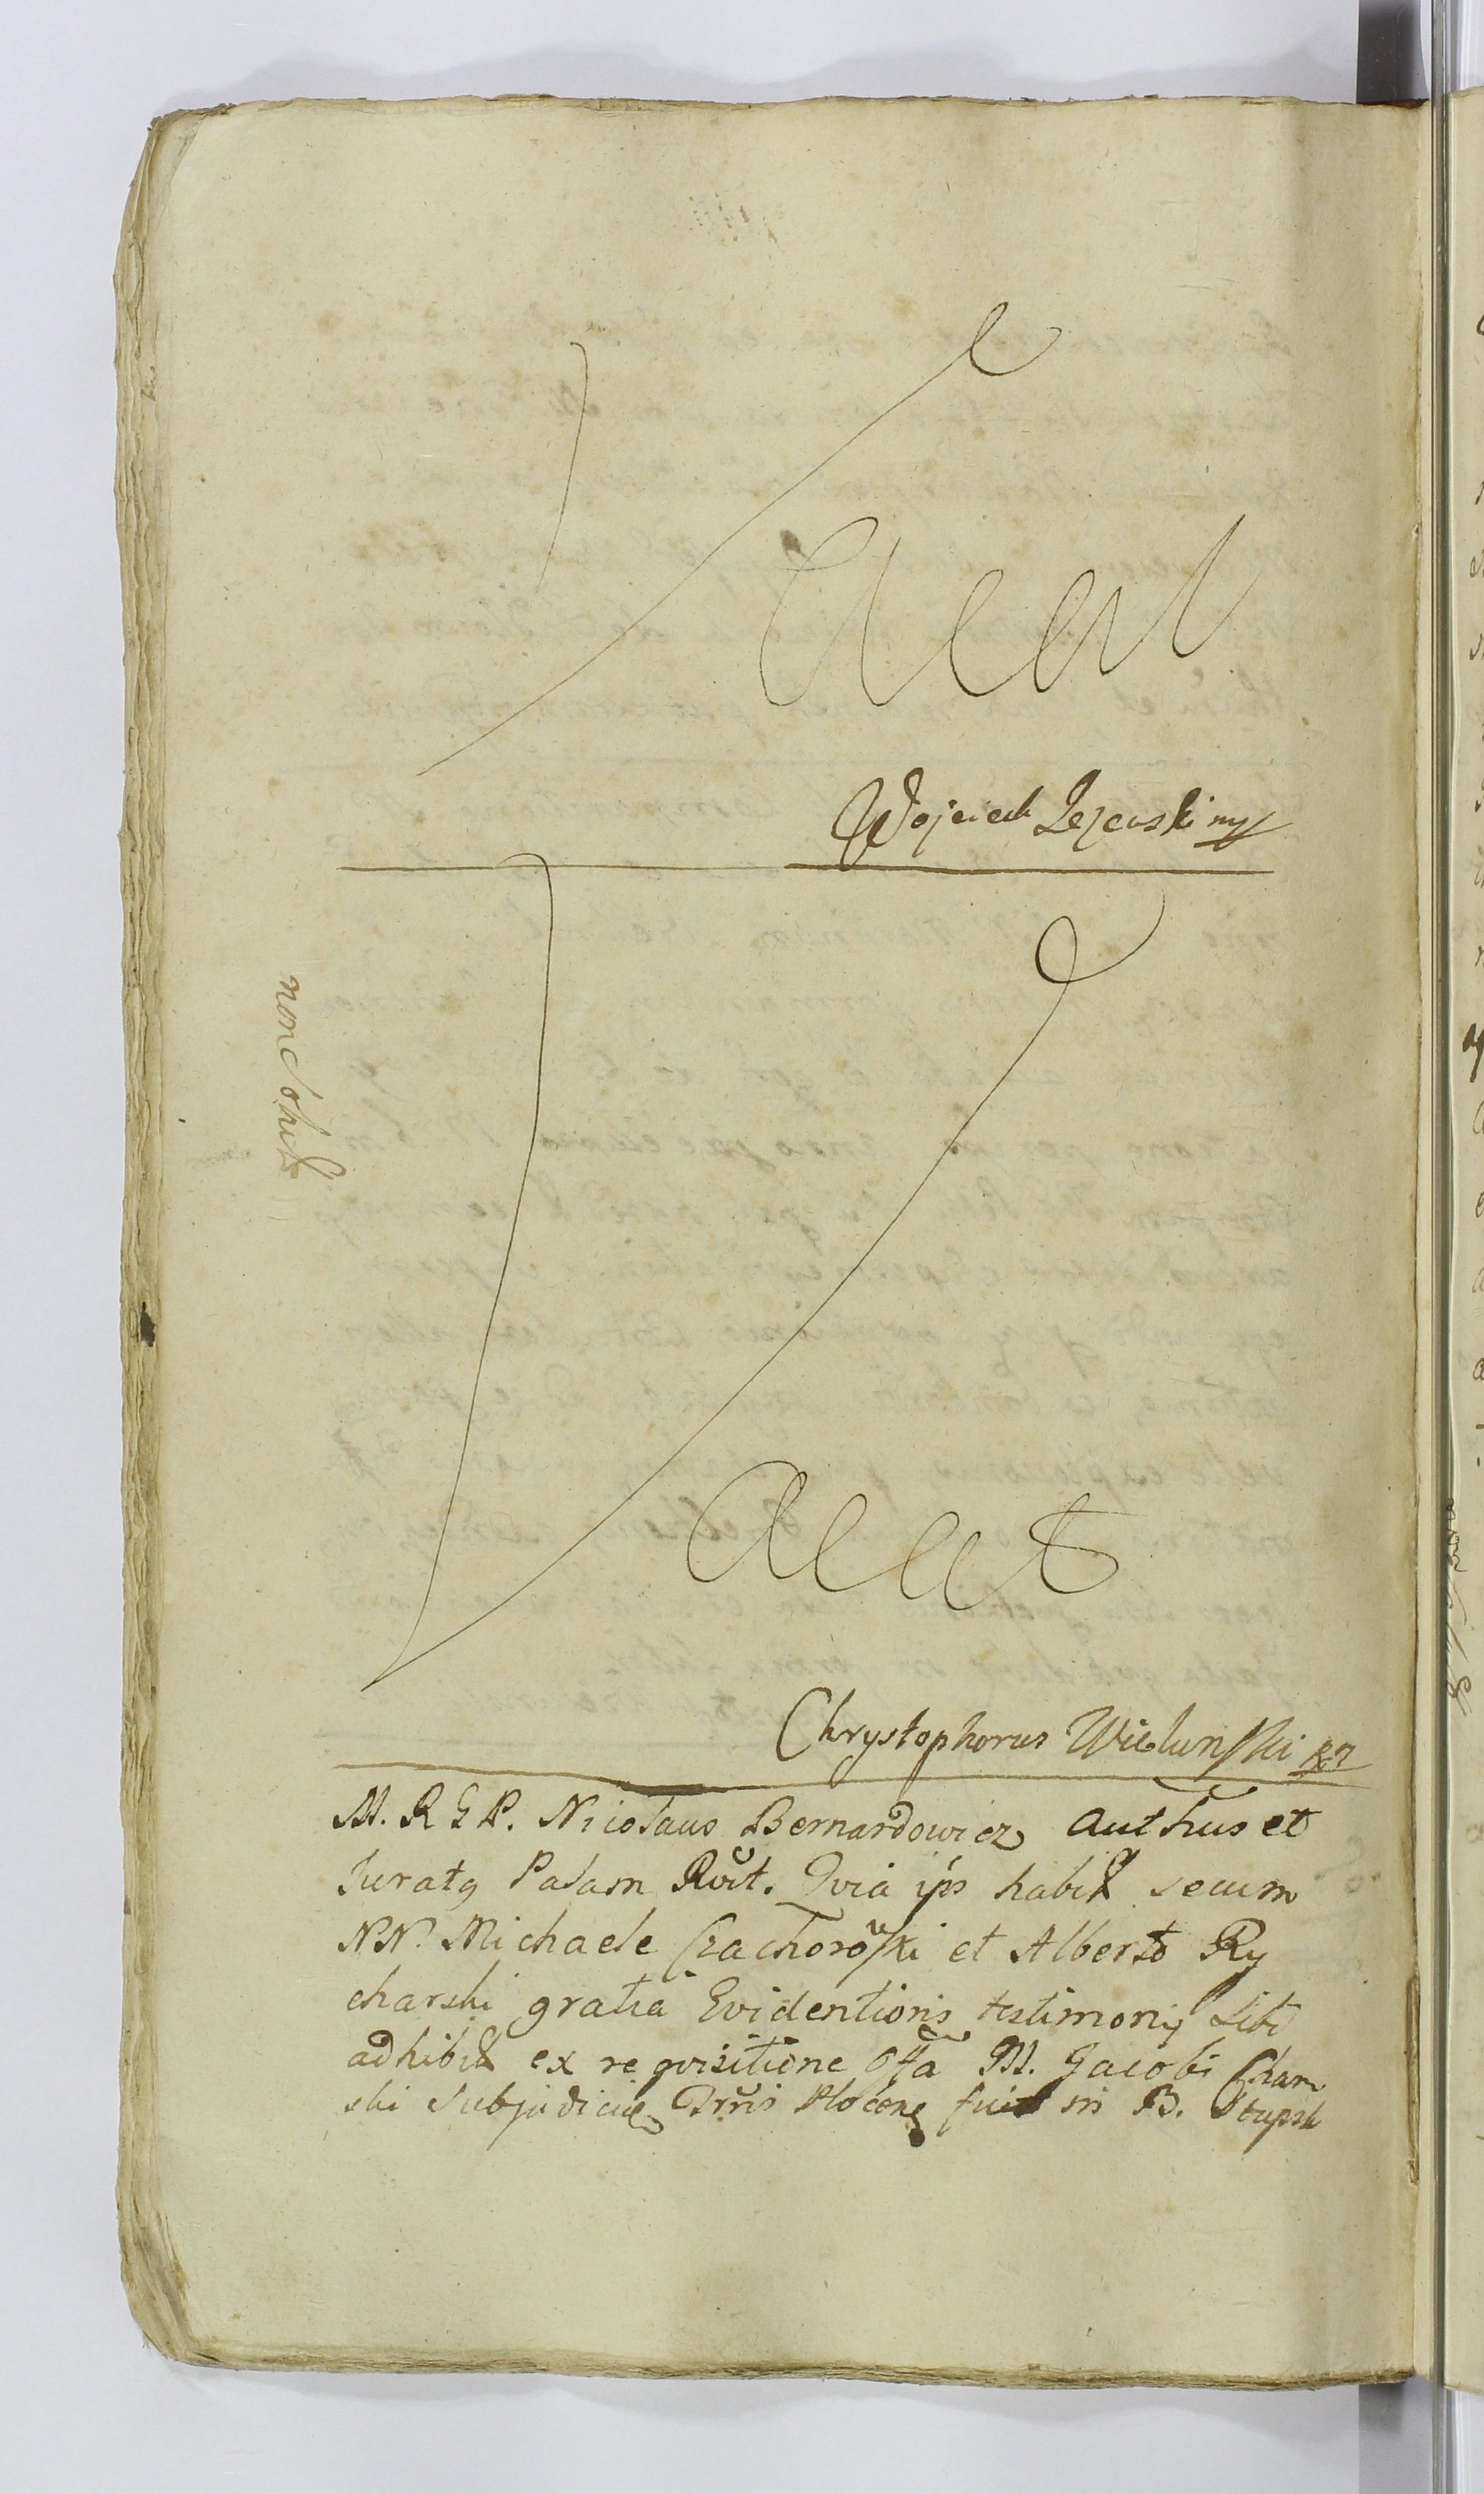 Vacat
Wojciech Zezewski mp
Vacat
Chrystophorus Wielunski
non solvit
M. R G P. Nicolaus Bernardowicz Authus et
Juratq Palam Rĕŭt. Qvia ips habit secum
NN. Michaele Czachorowski et Alberto Ry
charski gratia Evidentioris testimonij Sibi
adhibit ex reqvisitione Offa M. Jacobi Cham
ski Subjudicis Trris Plocens fuit in B. Słupsk